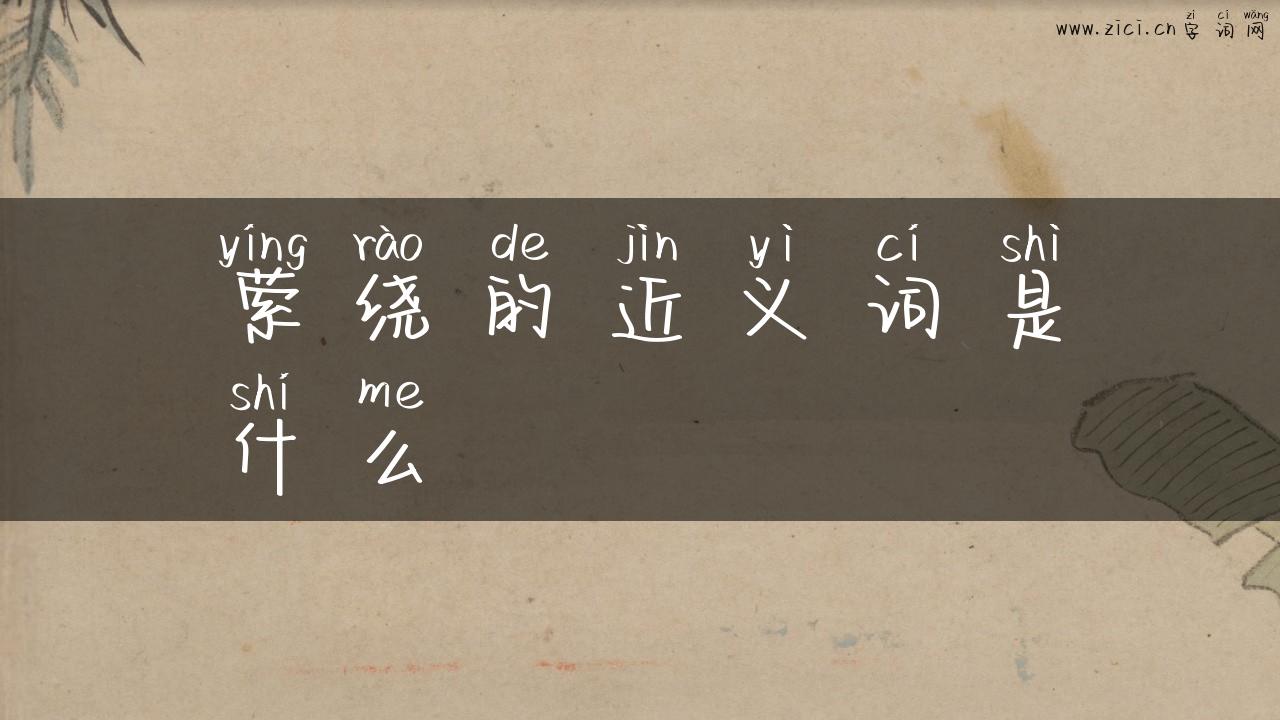 zì cí wǎng
www.zici.cn 字词网
yíng rào de jìn yì cí shì
萦绕的近义词是
shí me
什么